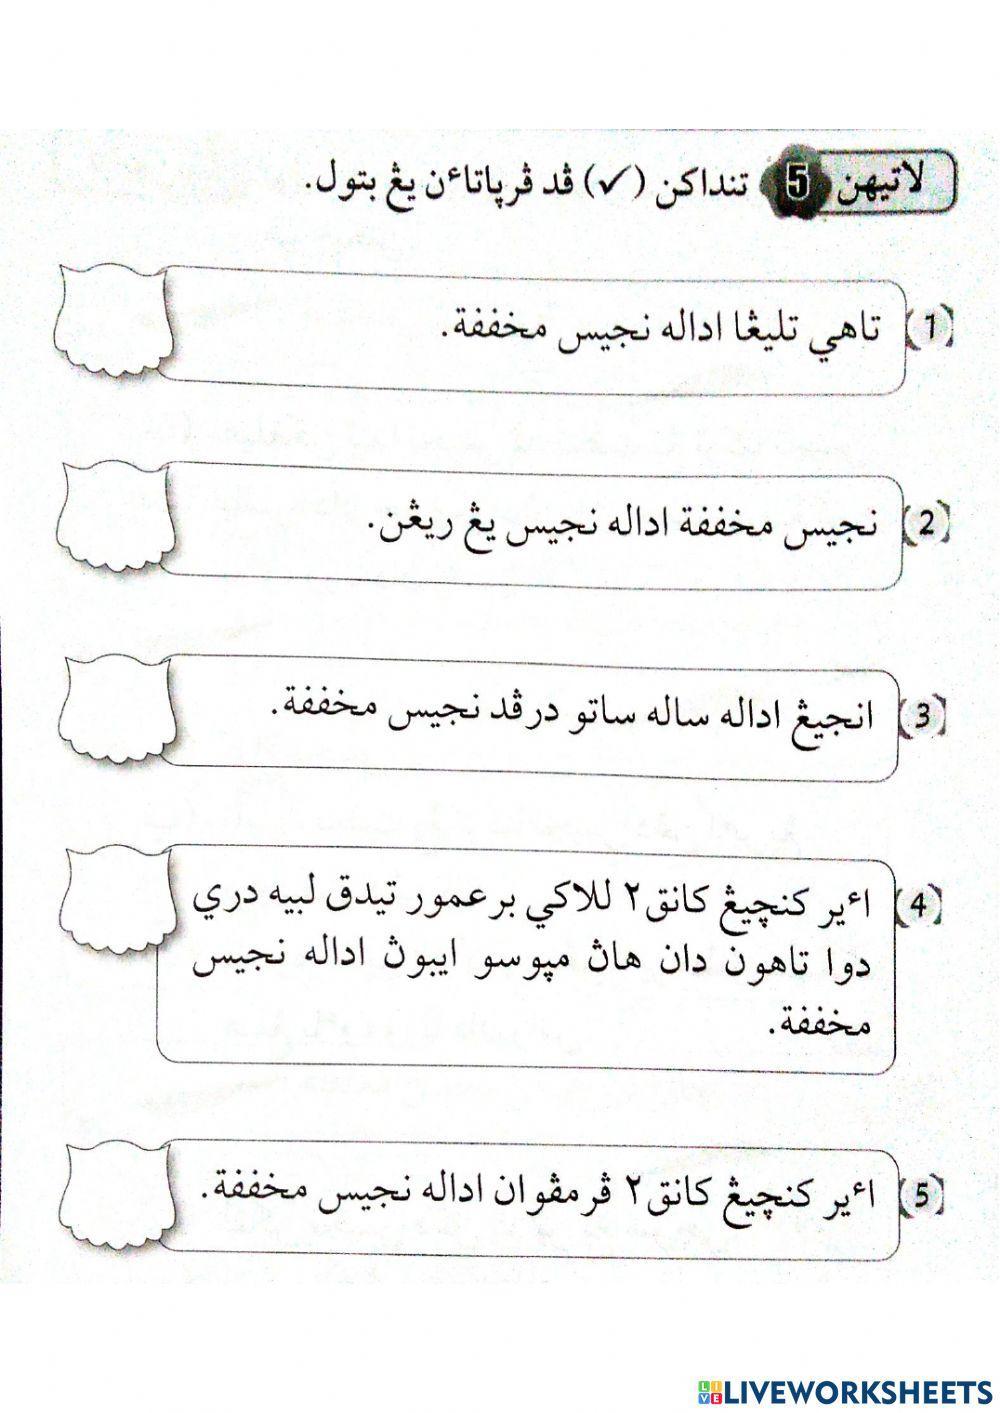 لاتيهن 5 تنداكن (✓) ڤد ڤرڽاتاءن يڠ بتول.
(1) تاهي تليڠا اداله نجيس مخففة.
(2) نجيس مخففة اداله نجيس يڠ ريڠن.
(3) انجيڠ اداله ساله ساتو درڤد نجيس مخففة.
(4) اءير كنچيڠ كانق٢ للاكي برعمور تيدق لبيه دري
دوا تاهون دان هاڽ مڽوسو ايبوڽ اداله نجيس
مخففة.
(5) اءير كنچيڠ كانق٢ ڤرمڤوان اداله نجيس مخففة.
LIVE LIVEWORKSHEETS